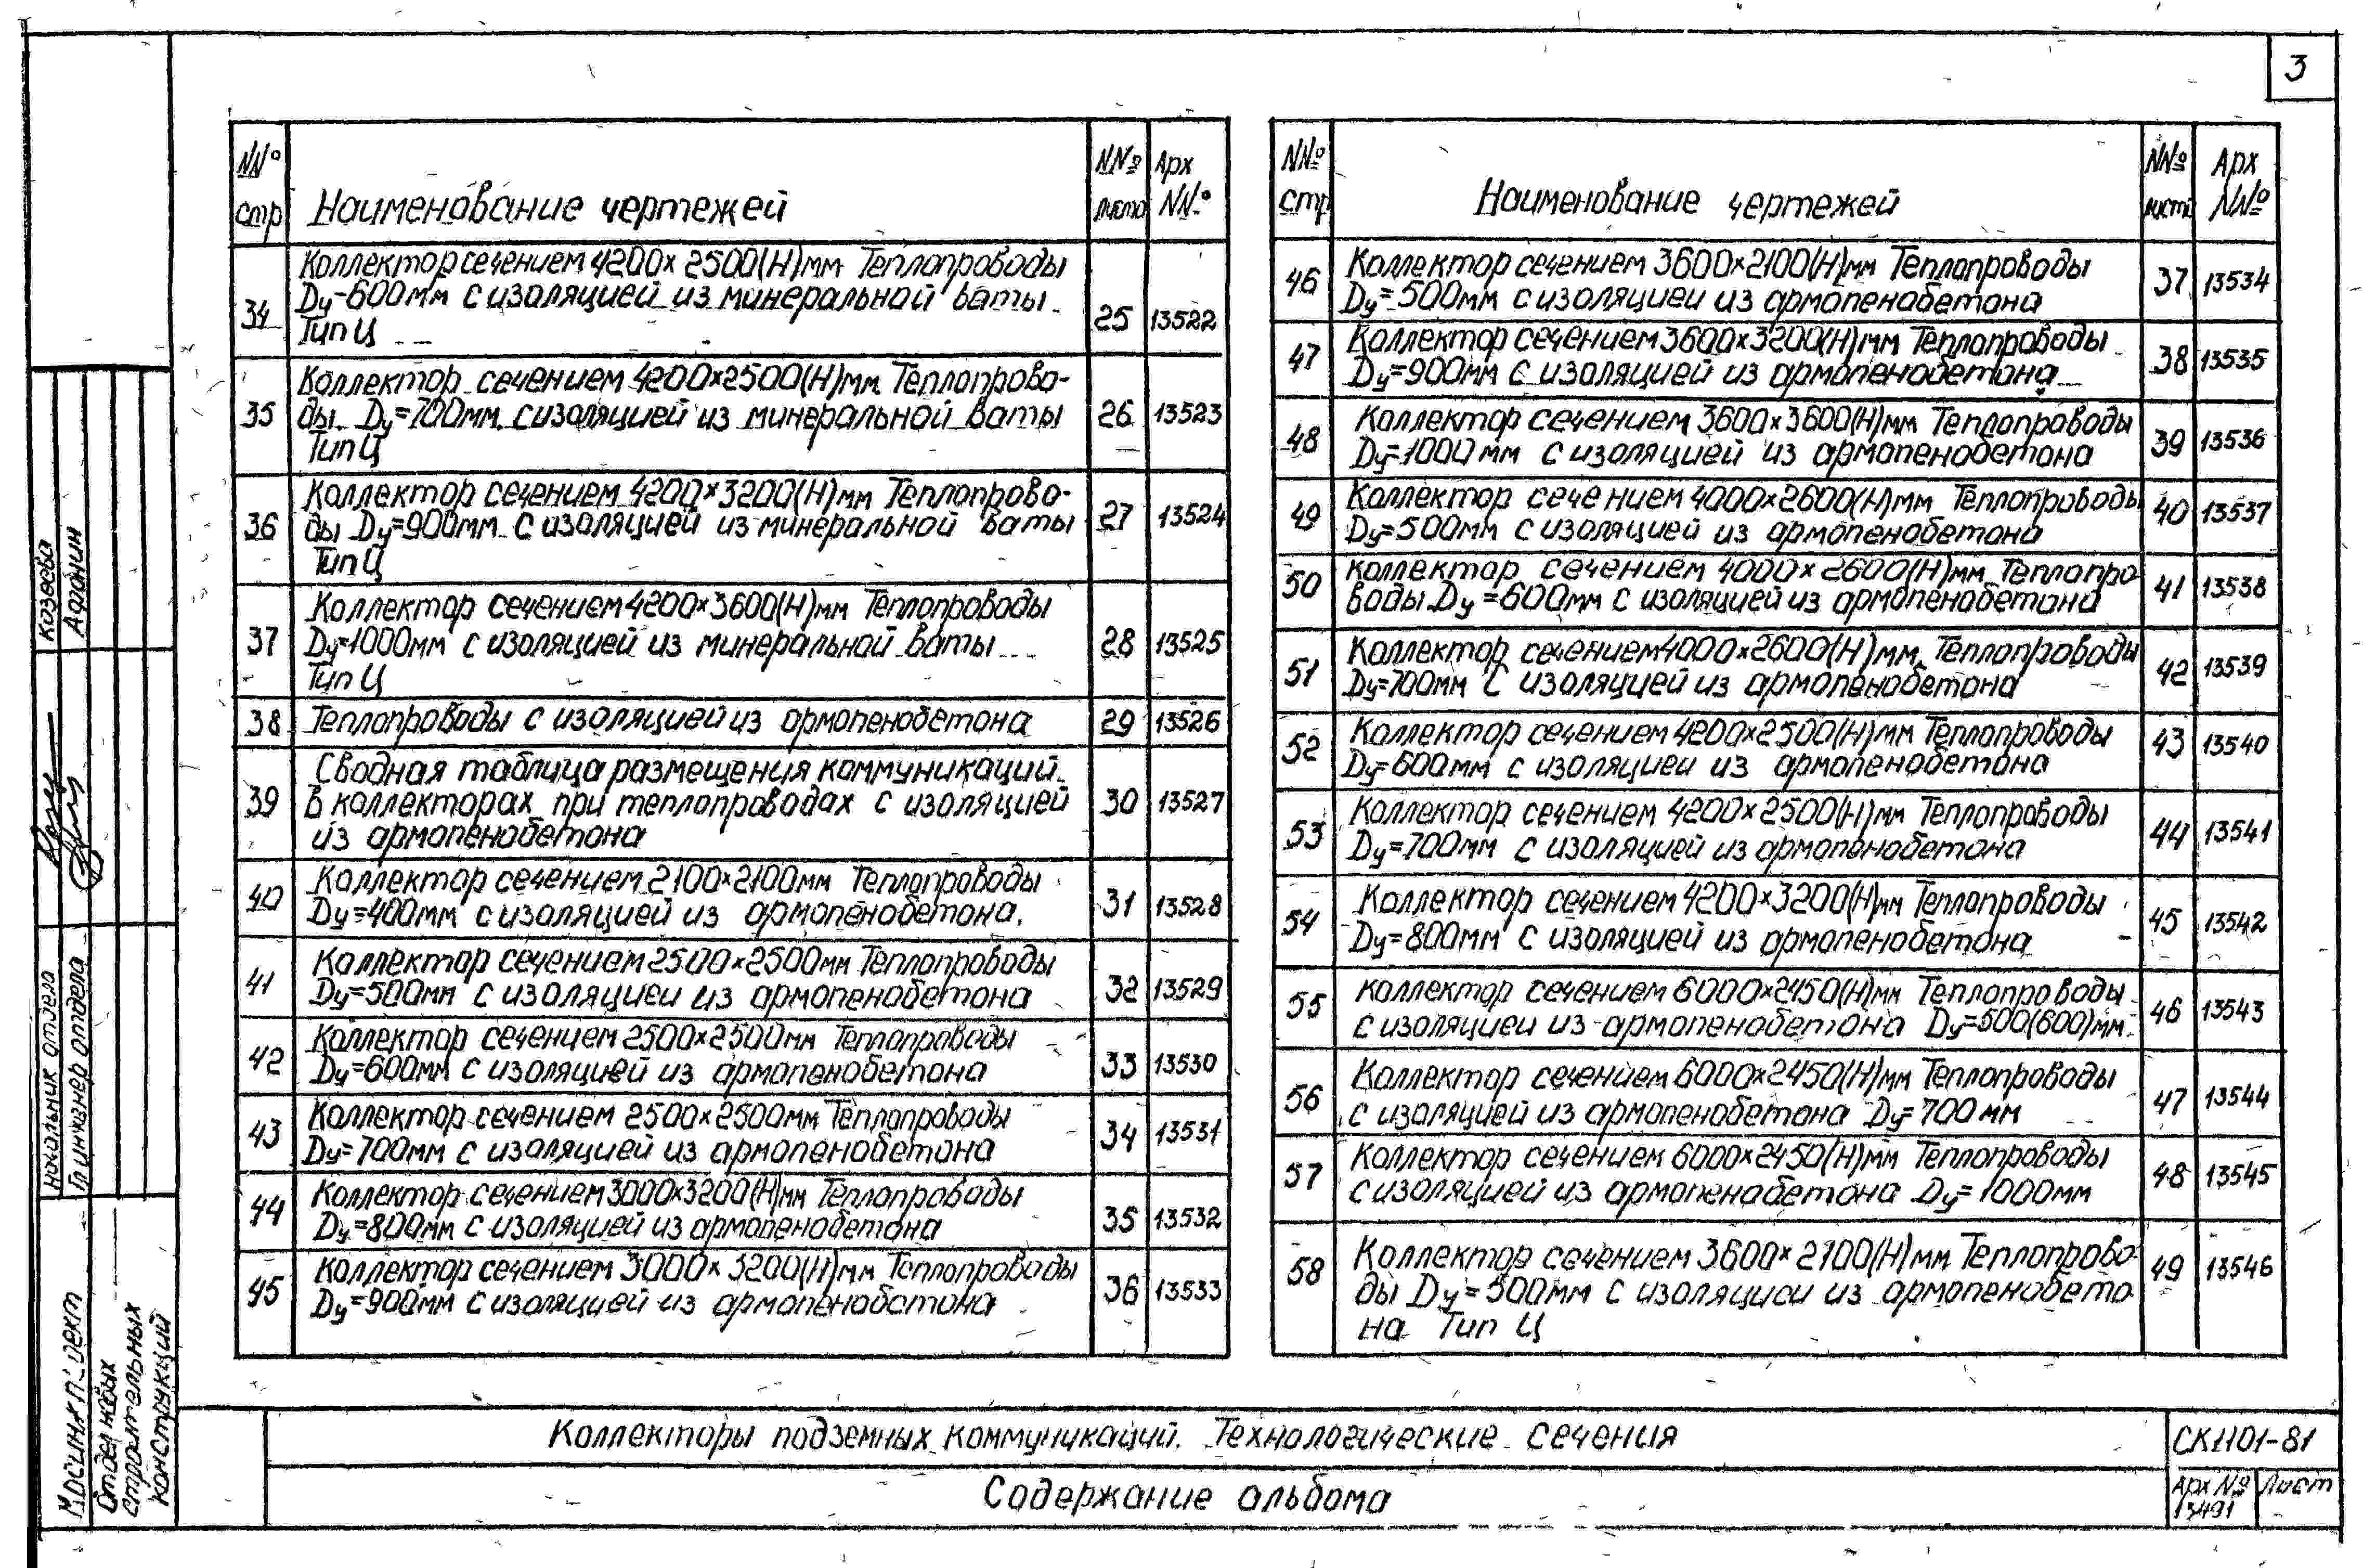 3
NN° стр
Наименование чертежей
NN° листа
Арх NN°
34
Коллектор сечением 4200×2500(Н)мм Теплопроводы
Dу-600мм с изоляцией из минеральной ваты
Тип Ц
25 13522
35
Коллектор сечением 4200×2500(Н)мм Теплопрово-
ды Dу=700мм с изоляцией из минеральной ваты
Тип Ц
26 13523
36
Коллектор сечением 4200×3200(Н)мм Теплопрово-
ды Dу=900мм с изоляцией из минеральной ваты
Тип Ц
27 13524
37
Коллектор сечением 4200×3600(Н)мм Теплопроводы
Dу=1000мм с изоляцией из минеральной ваты
Тип Ц
28 13525
38 Теплопроводы с изоляцией из армопенобетона 29 13526
39
Сводная таблица размещения коммуникаций
в коллекторах при теплопроводах с изоляцией
из армопенобетона
30 13527
40
Коллектор сечением 2100×2100мм Теплопроводы
Dу=400мм с изоляцией из армопенобетона.
31 13528
41
Коллектор сечением 2500×2500мм Теплопроводы
Dу=500мм с изоляцией из армопенобетона
32 13529
42
Коллектор сечением 2500×2500мм Теплопроводы
Dу=600мм с изоляцией из армопенобетона
33 13530
43
Коллектор сечением 2500×2500мм Теплопроводы
Dу=700мм с изоляцией из армопенобетона
34 13531
44
Коллектор сечением 3000×3200(Н)мм Теплопроводы
Dу=800мм с изоляцией из армопенобетона
35 13532
45
Коллектор сечением 3000×3200(Н)мм Теплопроводы
Dу=900мм с изоляцией из армопенобетона
36 13533
NN° стр
Наименование чертежей
NN° листа
Арх NN°
46
Коллектор сечением 3600×2100(Н)мм Теплопроводы
Dу=500мм с изоляцией из армопенобетона
37 13534
47
Коллектор сечением 3600×3200(Н)мм Теплопроводы
Dу=900мм с изоляцией из армопенобетона
38 13535
48
Коллектор сечением 3600×3600(Н)мм Теплопроводы
Dу=1000мм с изоляцией из армопенобетона
39 13536
49
Коллектор сечением 4000×2600(Н)мм Теплопроводы
Dу=500мм с изоляцией из армопенобетона
40 13537
50
Коллектор сечением 4000×2600(Н)мм Теплопро
воды Dу=600мм с изоляцией из армопенобетона
41 13538
51
Коллектор сечением 4000×2600(Н)мм Теплопроводы
Dу=700мм с изоляцией из армопенобетона
42 13539
52
Коллектор сечением 4200×2500(Н)мм Теплопроводы
Dу=600мм с изоляцией из армопенобетона
43 13540
53
Коллектор сечением 4200×2500(Н)мм Теплопроводы
Dу=700мм с изоляцией из армопенобетона
44 13541
54
Коллектор сечением 4200×3200(Н)мм Теплопроводы
Dу=800мм с изоляцией из армопенобетона
45 13542
55
Коллектор сечением 6000×2450(Н)мм Теплопроводы
с изоляцией из армопенобетона Dу=500(600)мм
46 13543
56
Коллектор сечением 6000×2450(Н)мм Теплопроводы
с изоляцией из армопенобетона Dу=700мм
47 13544
57
Коллектор сечением 6000×2450(Н)мм Теплопроводы
с изоляцией из армопенобетона Dу=1000мм
48 13545
58
Коллектор сечением 3600×2100(Н)мм Теплопрово-
ды Dу=500мм с изоляцией из армопенобето
на Тип Ц
49 13546
Козеева
Афонин
Начальник отдела
Гл инженер отдела
Мосинжпроект
Отдел новых
строительных
конструкций
Коллекторы подземных коммуникаций. Технологические сечения
СК1101-81
Содержание альбома
Арх N° 13491
Лист
-